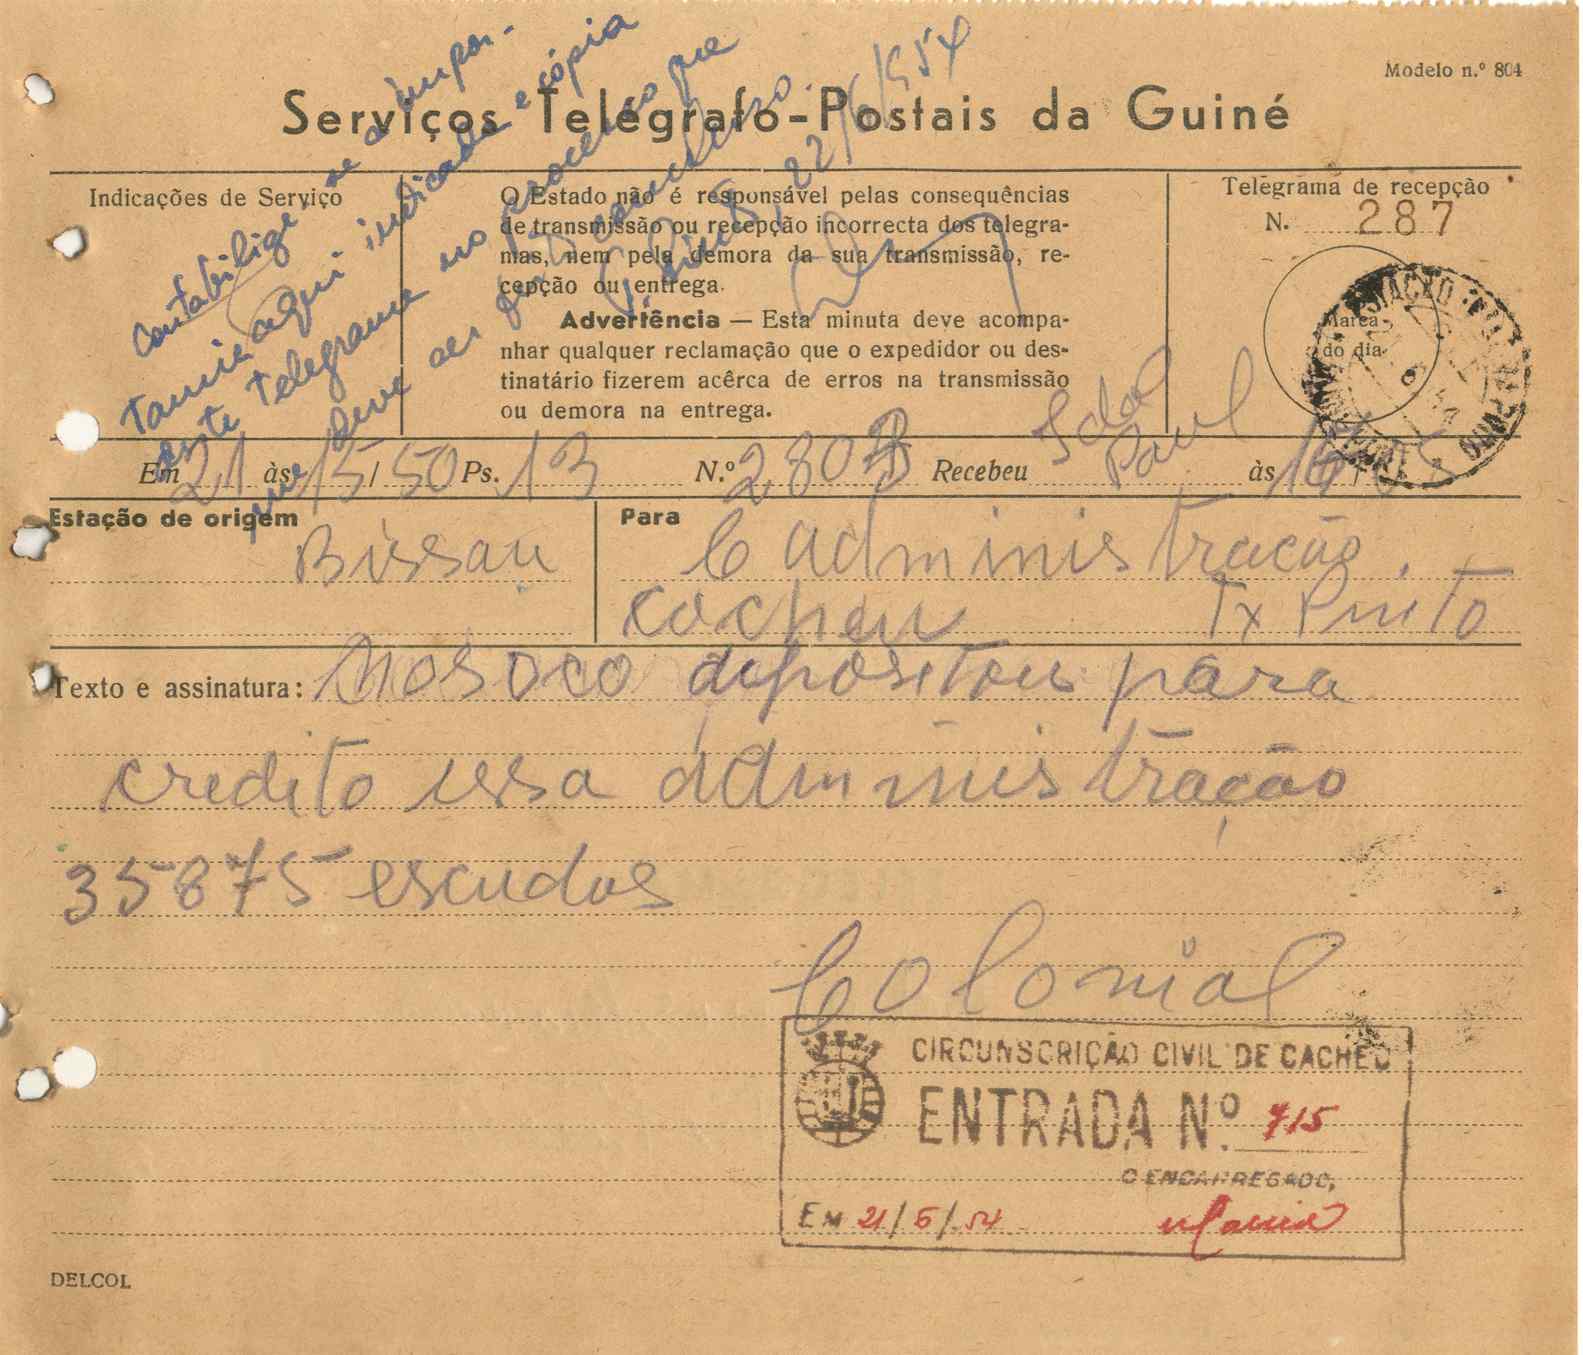 Modelo n.º 804
Serviços Telégrafo-Postais da Guiné
Contabilize-se a impor-
tancia aqui indicada e cópia
este telegrama no processo que
deve ser
Pinto, 22/6/954
Indicações de Serviço
O Estado não é responsável pelas consequências
de transmissão ou recepção incorrecta dos telegra-
mas, nem pela demora da sua transmissão, re-
cepção ou entrega.
Advertência — Esta minuta deve acompa-
nhar qualquer reclamação que o expedidor ou des-
tinatário fizerem acêrca de erros na transmissão
ou demora na entrega.
Telegrama de recepção
N. 287
Marca
do dia
Em 21 às 15/50 Ps. 13 N.º 2803 Recebeu Paul às 16
Estação de origem
Bissau
Para
C administração.
cacheu Tx Pinto
Texto e assinatura: Nosoco depositou para
credito essa administração
35875 escudos
Colonial
CIRCUNSCRIÇÃO CIVIL DE CACHEU
ENTRADA Nº. 715
O ENCARREGADO,
EM 21/6/54
DELCOL